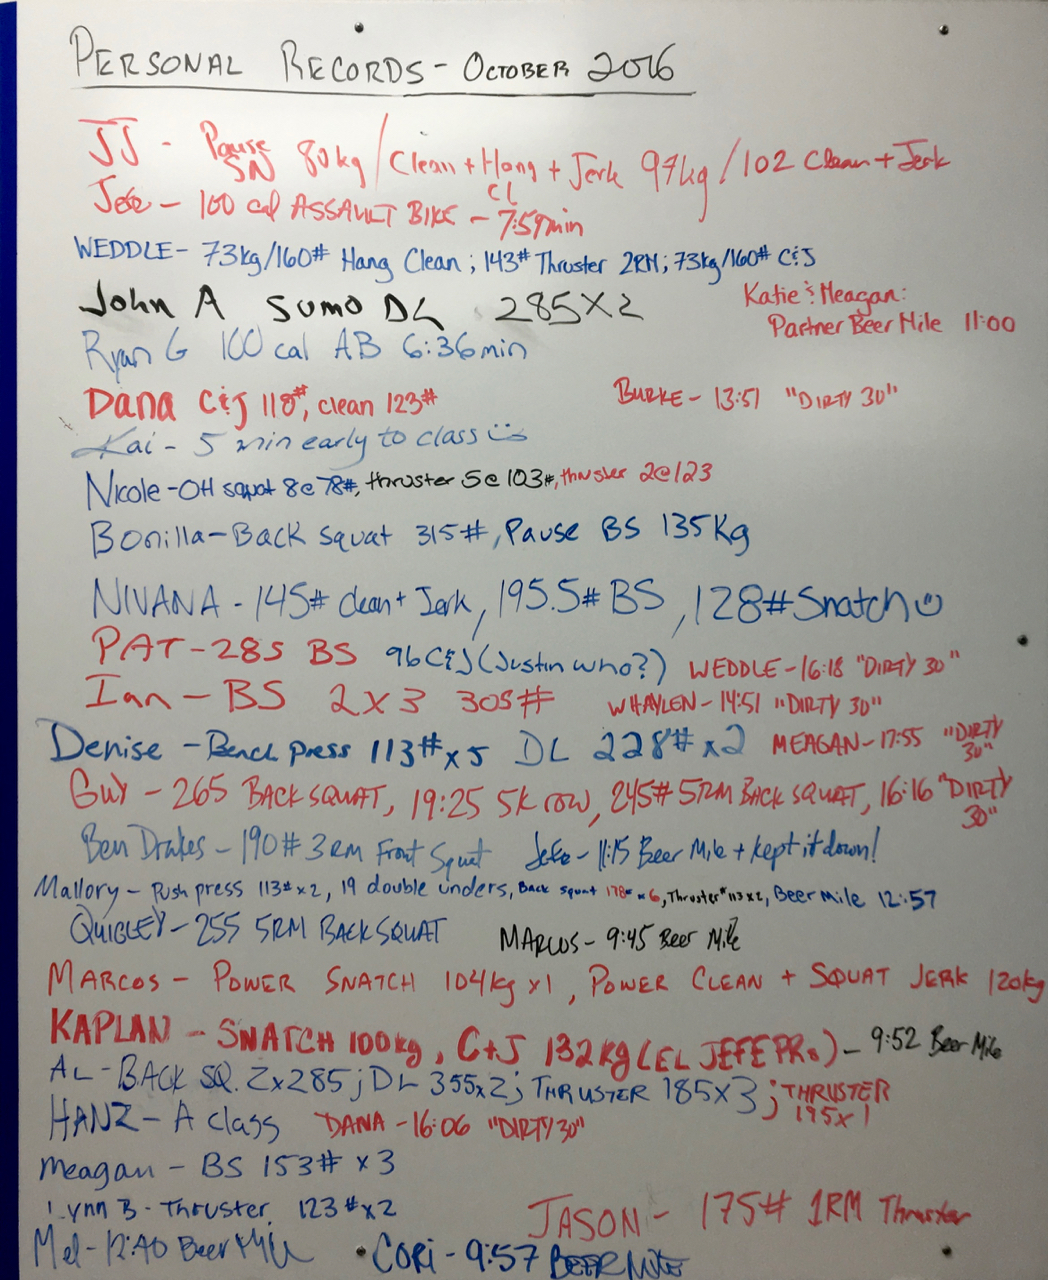 PERSONAL RECORDS - OCTOBER 2016
JJ - Pause SN 80kg / Clean + Hang Cl + Jerk 97kg / 102 Clean + Jerk
Jefe - 100 cal ASSAULT BIKE - 7:59min
WEDDLE - 73kg/160# Hang Clean ; 143# Thruster 2RM; 73kg/160# C&J
John A SUMO DL 285x2
Katie & Meagan:
Partner Beer Mile 11:00
Ryan G 100 cal AB 6:36min
Dana C&J 118#, clean 123#
BURKE - 13:51 "DIRTY 30"
Kai - 5 min early to class
Nicole - OH squat 8@78#, thruster 5@103#, thruster 2@123
Bonilla - Back squat 315#, Pause BS 135kg
NIVANA - 145# clean + Jerk, 195.5# BS, 128# Snatch
PAT - 285 BS 96 C&J (Justin who?)
WEDDLE - 16:18 "DIRTY 30"
Ian - BS 2x3 305#
WHAYLEN - 14:51 "DIRTY 30"
Denise - Bench press 113# x 5 DL 228# x2
MEAGAN - 17:55 "DIRTY 30"
GUY - 265 BACK SQUAT, 19:25 5K row, 245# 5RM BACK SQUAT, 16:16 "DIRTY 30"
Ben Drakes - 190# 3RM Front Squat
Jefe - 11:15 Beer Mile + kept it down!
Mallory - Push press 113# x2, 19 double unders, Back squat 178# x 6, Thruster #113x2, Beer mile 12:57
QUIGLEY - 255 5RM BACK SQUAT
MARCOS - 9:45 Beer Mile
MARCOS - POWER SNATCH 104kg x1, POWER CLEAN + SQUAT JERK 120kg
KAPLAN - SNATCH 100kg, C+J 132kg (EL JEFE PRs) - 9:52 Beer Mile
AL - BACK SQ. 2x285; DL 355x2; THRUSTER 185x3; THRUSTER 195x1
HANZ - A class
DANA - 16:06 "DIRTY 30"
Meagan - BS 153# x3
Lynn B - Thruster 123#x2
JASON - 175# 1RM Thruster
Mel - 12:40 Beer Mile
CORI - 9:57 BEER MILE